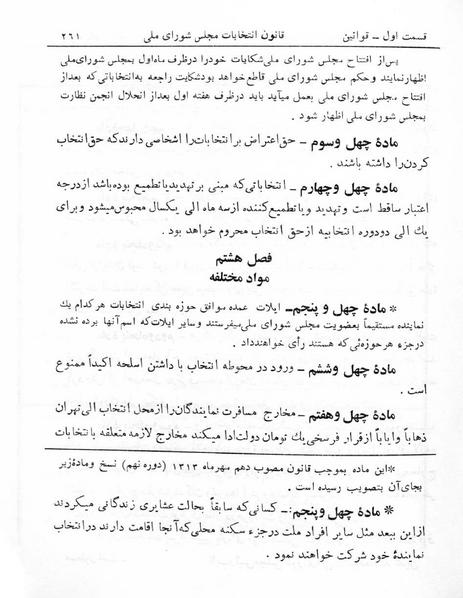 قسمت اول – قوانین قانون انتخابات مجلس شورای ملی ۲۶۱
پس از افتتاح مجلس شورای ملی شکایات خود را در ظرف ماه اول بمجلس شورای ملی
اظهار نمایند و حکم مجلس شورای ملی قاطع خواهد بود شکایت راجعه به انتخاباتی که بعد از
افتتاح مجلس شورای ملی بعمل میآید باید در ظرف هفته اول بعد از انحلال انجمن نظارت
بمجلس شورای ملی اظهار شود .
مادهٔ چهل و سوم – حق اعتراض بر انتخابات را اشخاصی دارند که حق انتخاب
کردن را داشته باشند .
مادهٔ چهل و چهارم – انتخاباتی که مبنی بر تهدید یا تطمیع بوده باشد از درجه
اعتبار ساقط است و تهدید و یا تطمیع کننده از سه ماه الی یکسال محبوس میشود و برای
یك الی دو دوره انتخابیه از حق انتخاب محروم خواهد بود .
فصل هشتم
مواد مختلفه
* مادهٔ چهل و پنجم – ایلات عمده موافق حوزه بندی انتخابات هر کدام یك
نماینده مستقیماً بعضویت مجلس شورای ملی میفرستند و سایر ایلات که اسم آنها برده نشده
در جزء هر حوزه‌ئی که هستند رأی خواهند داد .
مادهٔ چهل و ششم – ورود در محوطه انتخاب با داشتن اسلحه اکیداً ممنوع
است .
مادهٔ چهل و هفتم – مخارج مسافرت نمایندگان را از محل انتخاب الی تهران
ذهاباً و ایاباً از قرار فرسخی یك تومان دولت ادا میکند مخارج لازمه متعلقه با نتخابات
* این ماده بموجب قانون مصوب دهم مهر ماه ۱۳۱۳ (دوره نهم) نسخ و ماده زیر
بجای آن بتصویب رسیده است .
* مادهٔ چهل و پنجم :– کسانی که سابقاً بحالت عشایری زندگانی میکردند
از این ببعد مثل سایر افراد ملت در جزء سکنه محلی که آنجا اقامت دارند در انتخاب
نمایندهٔ خود شرکت خواهند نمود .